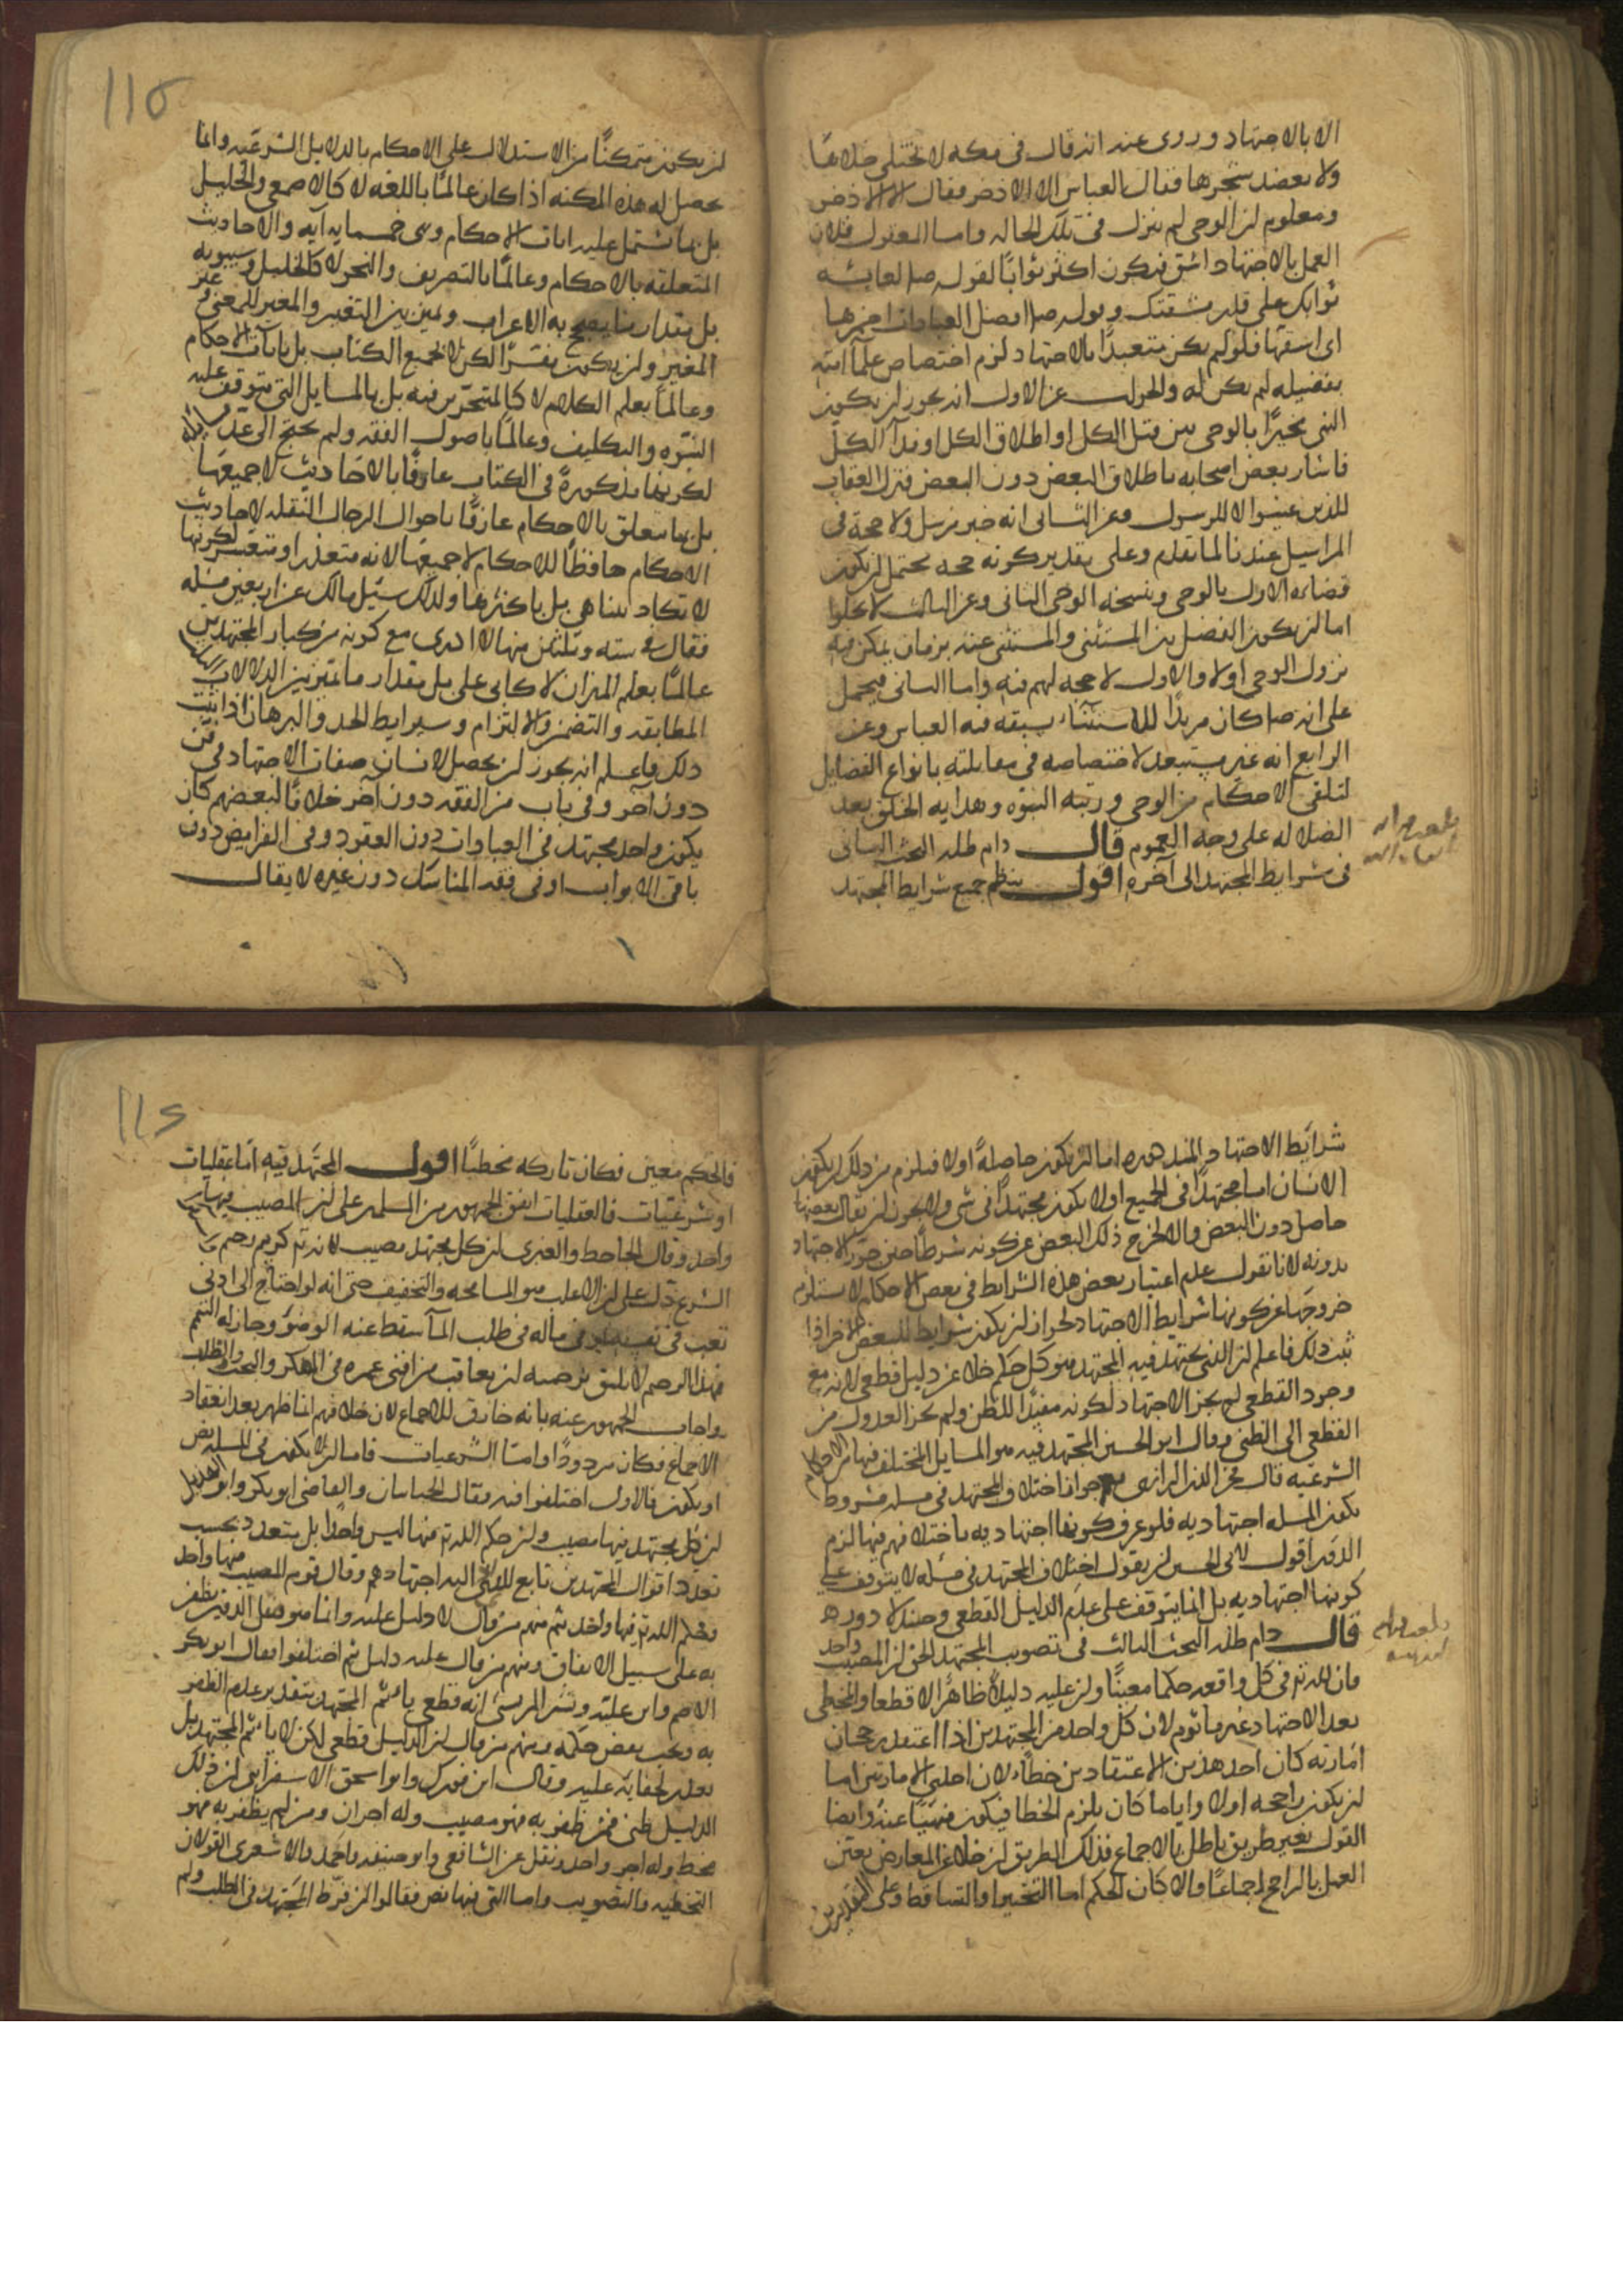 الا بالاجتهاد وروى عنه انه قال فى مكه لا يختلى خلاها
ولا يعضد شجرها فقال العباس الا الاذخر فقال الا الاذخر
ومعلوم ان الوحى لم ينزل فى تلك الحاله واما المعقول فلان
العمل بالاجتهاد اشق فيكون اكثر ثوابًا لقوله صلم لعايشه
ثوابك على قدر مشقتك وقوله صلم افضل العبادات احمزها
اى اشقها فلو لم يكن متعبدًا بالاجتهاد لزم اختصاص علمآ امته
بفضيله لم يكن له والجواب عن الاول انه يجوز ان يكون
النبى مخيرًا بالوحى بين قتل الكل او اطلاق الكل او فدآ الكل
فاشار بعض اصحابه باطلاق البعض دون البعض فنزل العقاب
للذين عينوا لا للرسول وعن الثانى انه خبر مرسل ولا حجة فى
المراسيل عندنا لما تقدم وعلى تقدير كونه حجه يحتمل ان يكون
قضاوه الاول بالوحى ونسخه الوحى الثانى وعن الثالث لا يخلوا
اما ان يكون الفصل بين المستثنى والمستثنى عنه بزمان يمكن فيه
نزول الوحى اولا والاول لا حجه لهم فيه واما الثانى فيحمل
على انه صلم كان مريدًا للاستثناء يسبقه فيه العباس وعن
الرابع انه غير مستبعد لاختصاصه فى مقابلته بانواع الفضايل
لتلقى الاحكام من الوحى ورتبه النبوه وهدايه الخلق بعد
الضلاله على وجه العموم قال دام ظله البحث الثانى
فى شرايط المجتهد الى آخره اقول ينظم جميع شرايط المجتهد
ان يكون متمكنًا من الاستدلال على الاحكام بالدلايل الشرعيه وانما
يحصل له هذه المكنه اذا كان عالمًا باللغه لا كالاصمعى والخليل
بل بما تشتمل عليه ايات الاحكام وهى خمسمايه آيه والاحاديث
المتعلقه بالاحكام وعالمًا بالتصريف والنحو لا كالخليل وسيبويه
بل بمقدار ما يصح به الاعراب ويميز بين التغير والمغير للمعنى وغير
المغير وان يكون مفسرًا لكن لا لجميع الكتاب بل بآيات الاحكام
وعالمًا بعلم الكلام لا كالمتبحرين فيه بل بالمسايل التى يتوقف عليه
النبوه والتكليف وعالمًا باصول الفقه ولم يحتج الى عد
لكونها مذكورة فى الكتاب عارفًا بالاحاديث لا جميعها
بل بما يتعلق بالاحكام عارفًا باحوال الرجال النقله لاحاديث
الاحكام حافظًا للاحكام لا جميعها لانه متعذر او متعسر لكونها
لا تكاد تتناهى بل باكثرها ولذلك سئيل مالك عن اربعين مسئله
فقال فى سته وثلثين منها لا ادرى مع كونه من كبار المجتهدين
عالمًا بعلم الميزان لا كابى على بل بمقدار ما يميز بين الدلالات
المطابقه والتضمن والالتزام وشرايط الحد والبرهان اذا ثبت
ذلك فاعلم انه يجوز ان يحصل لانسان صفات الاجتهاد فى فن
دون آخر وفى باب من الفقه دون آخر خلافًا لبعضهم كان
يكون واحد مجتهد فى العبادات دون العقود وفى الفرايض دون
باقى الابواب او فى فقه المناسك دون غيره لا يقال
شرايط الاجتهاد المذكوره اما ان يكون حاصلةً اولا فيلزم من ذلك ان يكون
الانسان اما مجتهدًا فى الجميع اولا يكون مجتهدًا فى شى ولا يجوز ان يقال بعضها
حاصل دون البعض والا لخرج ذلك البعض عن كونه شرطًا حين جوز الاجتهاد
بدونه لانا نقول عدم اعتبار بعض هذه الشرايط فى بعض الاحكام لا يستلزم
خروجها عن كونها شرايط الاجتهاد لجواز ان يكون شرايط للبعض الاخر اذا
ثبت ذلك فاعلم ان الذى يجتهد فيه المجتهد هو كل حكم خلا عن دليل قطعى لانه مع
وجود القطعى لم يجز الاجتهاد لكونه مفيدًا للظن ولم يجز العدول من
القطعى الى الظنى وقال ابو الحسين المجتهد فيه هو المسايل المختلف فيها من الاحكام
الشرعيه قال فخر الدين الرازى جواز اختلاف المجتهد فى مسله مشروط
بكون المسله اجتهاديه فلو عرف كونها اجتهاديه باختلافهم فيها لزم
الدور اقول لابى الحسين ان يقول اختلاف المجتهد فى مسله لا يتوقف على
كونها اجتهاديه بل انما يتوقف على عدم الدليل القطعى وحينئذ لا دور
قال دام ظله البحث الثالث فى تصويب المجتهد الحق ان المصيب واحد
وان لله تع فى كل واقعه حكما معينًا وان عليه دليلًا ظاهرًا لا قطعا والمخطى
بعد الاجتهاد غير ماثوم لان كل واحد من المجتهدين اذا اعتقد رجحان
امارته كان احد هذين الاعتقادين خطآء لان احدى الامارتين اما
ان يكون راجحه اولا واياما كان يلزم الخطا فيكون منهيًا عنه وايضا
القول بغير طريق باطل بالاجماع فذلك الطريق ان خلا عن المعارض يعين
العمل بالراجح اجماعًا والا كان الحكم اما التخير او التساقط وعلى التقديرين
فالحكم معين فكان تاركه مخطئًا اقول المجتهد فيه اما عقليات
او شرعيات فالعقليات اتفق الجمهور من المسلمين على ان المصيب فيها
واحد وقال الجاحظ والعنبرى ان كل مجتهد مصيب لانه تع كريم رحيم
الشرع يدل على ان الاغلب هو المسامحه والتخفيف حتى انه لو احتاج الى ادنى
تعب فى نفسه او فى ماله فى طلب المآ سقط عنه الوضوء وجاز له التيمم
فهذا الرحيم لا يليق برحمته ان يعاقب من افنى عمره فى الفكر والبحث والطلب
واجاب الجمهور عنه بانه خارق للاجماع لان خلافهم انما ظهر بعد انعقاد
الاجماع فكان مردودًا واما الشرعيات فاما ان لا يكون فى المسله نص
او يكون فالاول اختلفوا فيه فقال الجبائيان والقاضى ابو بكر وابو الهذيل
ان كل مجتهد فيها مصيب وان حكم الله تع فيها ليس واحدا بل يتعدد بحسب
تعدد اقوال المجتهدين تابع لما ادى اليه اجتهادهم وقال قوم المصيب فيها واحد
وحكم الله تع فيها واحد ثم منهم من قال لا دليل عليه وانما هو مثل الدفين يظفر
به على سبيل الاتفاق ومنهم من قال عليه دليل ثم اختلفوا فقال ابو بكر
الاصم وابن علية وبشر المريسى انه قطعى ياثم المجتهد بتقدير عدم الظفر
به ويجب نقض حكمه ومنهم من قال ان الدليل قطعى لكن لا ياثم المجتهد بل
يعذر لخفايه عليه وقال ابن فورك وابو اسحق الاسفراينى ان ذلك
الدليل ظنى فمن ظفر به فهو مصيب وله اجران ومن لم يظفر به فهو
مخط وله اجر واحد ونقل عن الشافعى وابو حنيفه واحمد والاشعرى القولان
التخطيه والتصويب واما التى فيها نص فقالوا ان فرط المجتهد فى الطلب ولم